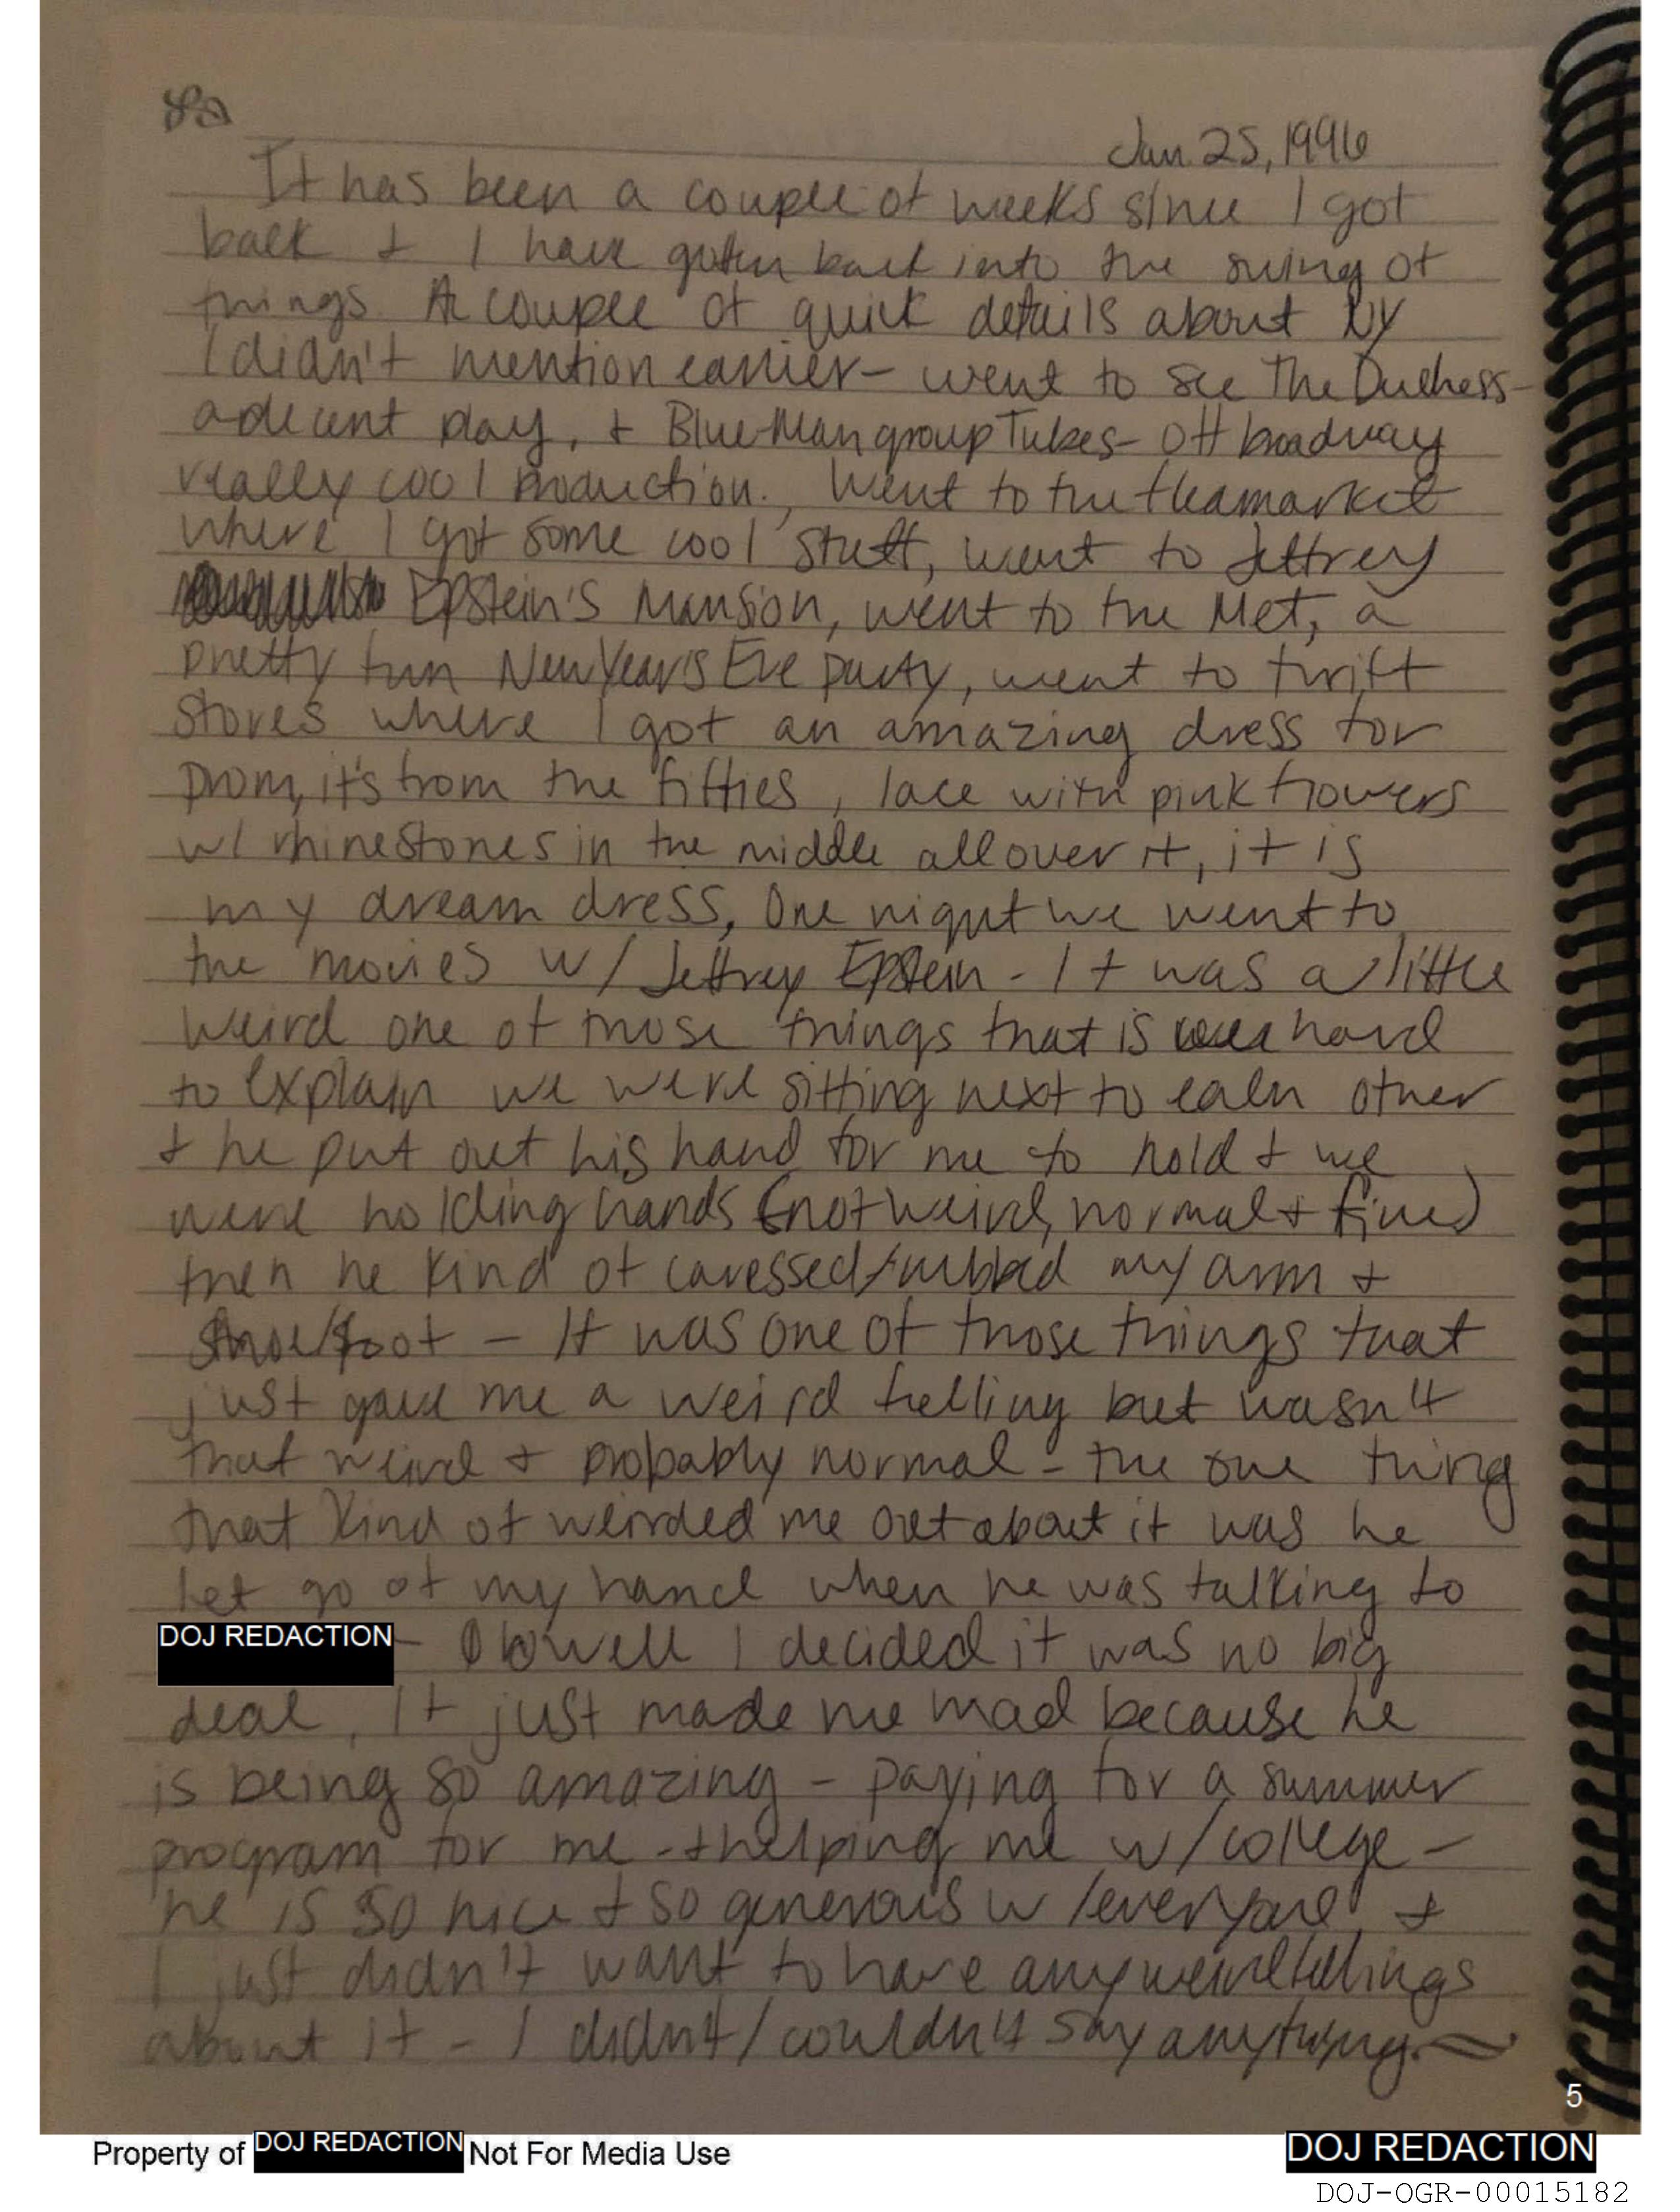 Jan. 25, 1996
It has been a couple of weeks since I got
back + I have gotten back into the swing of
things. A couple of quick details about NY
I didn't mention earlier - went to see The Duchess -
a decent play, + Blue Man group Tubes - Off broadway
really cool production. Went to the fleamarket
where I got some cool stuff, went to Jeffrey
Epstein's Mansion, went to the Met, a
pretty fun New Year's Eve party, went to thrift
stores where I got an amazing dress for
prom, it's from the fifties, lace with pink flowers
w/ rhinestones in the middle all over it, it is
my dream dress, One night we went to
the movies w/ Jeffrey Epstein - It was a little
weird one of those things that is hard
to explain we were sitting next to each other
+ he put out his hand for me to hold + we
were holding hands (not weird, normal + fine)
then he kind of caressed/rubbed my arm +
shoe/foot - It was one of those things that
just gave me a weird felling but wasn't
that weird + probably normal - the one thing
that kind of weirded me out about it was he
let go of my hand when he was talking to
DOJ REDACTION - Oh well I decided it was no big
deal, It just made me mad because he
is being so amazing - paying for a summer
program for me - + helping me w/ college -
he is so nice + so generous w/ everyone +
I just didn't want to have any weird fellings
about it - I didn't/couldn't say anything.
5
Property of DOJ REDACTION Not For Media Use
DOJ REDACTION
DOJ-OGR-00015182